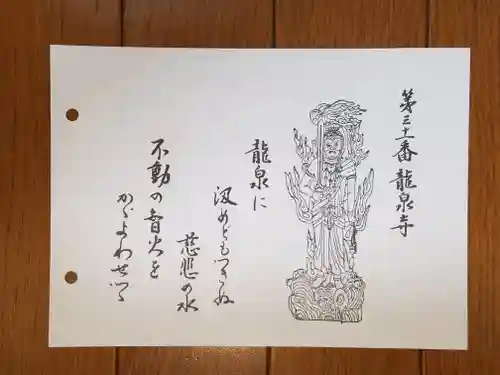 第三十番 龍泉寺
龍泉に
汲めどもつきぬ
慈悲の水
不動の香火を
かゞよわせつゝ